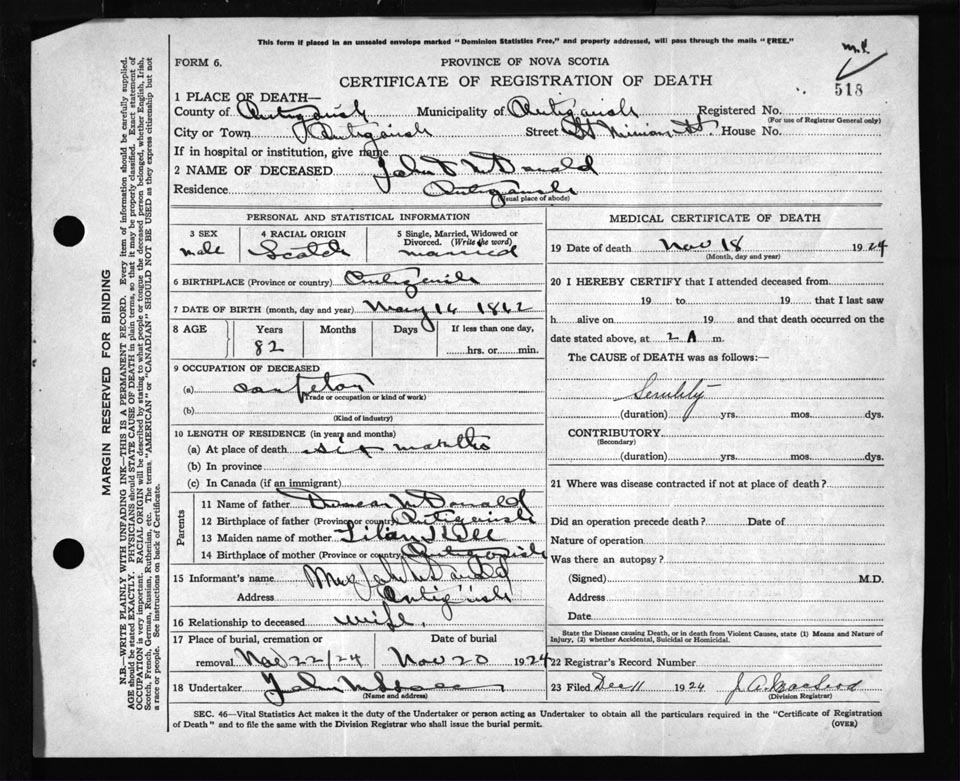 This form if placed in an unsealed envelope marked "Dominion Statistics Free," and properly addressed, will pass through the mails "FREE."
FORM 6.
PROVINCE OF NOVA SCOTIA
CERTIFICATE OF REGISTRATION OF DEATH
518
1 PLACE OF DEATH—
County of Antigonish Municipality of Antigonish Registered No.
(For use of Registrar General only)
City or Town Antigonish Street St Ninian St House No.
If in hospital or institution, give name
2 NAME OF DECEASED John D McDonald
Residence Antigonish
(Usual place of abode)
PERSONAL AND STATISTICAL INFORMATION
3 SEX male
4 RACIAL ORIGIN Scotch
5 Single, Married, Widowed or Divorced. (Write the word) married
6 BIRTHPLACE (Province or country) Antigonish
7 DATE OF BIRTH (month, day and year) May 16 1842
8 AGE Years Months Days If less than one day,
82 hrs. or min.
9 OCCUPATION OF DECEASED
(a)
(Trade or occupation or kind of work)
(b)
(Kind of industry)
10 LENGTH OF RESIDENCE (in years and months)
(a) At place of death six months
(b) In province
(c) In Canada (if an immigrant)
Parents
11 Name of father Duncan McDonald
12 Birthplace of father (Province or country) Antigonish
13 Maiden name of mother
14 Birthplace of mother (Province or country) Antigonish
15 Informant's name Mrs John McDonald
Address Antigonish
16 Relationship to deceased wife.
17 Place of burial, cremation or removal Nov 22/24
Date of burial Nov 20 1924
18 Undertaker John
(Name and address)
MEDICAL CERTIFICATE OF DEATH
19 Date of death Nov 18 1924
(Month, day and year)
20 I HEREBY CERTIFY that I attended deceased from
19 to 19 that I last saw
h alive on 19 and that death occurred on the
date stated above, at 2 A m.
The CAUSE of DEATH was as follows:—
Senility
(duration) yrs. mos. dys.
CONTRIBUTORY
(Secondary)
(duration) yrs. mos. dys.
21 Where was disease contracted if not at place of death?
Did an operation precede death? Date of
Nature of operation
Was there an autopsy?
(Signed) M.D.
Address
Date
State the Disease causing Death, or in death from Violent Causes, state (1) Means and Nature of
Injury, (2) whether Accidental, Suicidal or Homicidal.
22 Registrar's Record Number
23 Filed Dec 11 1924 J. A. Macleod
(Division Registrar)
SEC. 46—Vital Statistics Act makes it the duty of the Undertaker or person acting as Undertaker to obtain all the particulars required in the "Certificate of Registration
of Death" and to file the same with the Division Registrar who shall issue the burial permit.
(OVER)
MARGIN RESERVED FOR BINDING
N.B.—WRITE PLAINLY WITH UNFADING INK—THIS IS A PERMANENT RECORD. Every item of information should be carefully supplied.
AGE should be stated EXACTLY. PHYSICIANS should STATE CAUSE OF DEATH in plain terms, so that it may be properly classified. Exact statement of
OCCUPATION is very important. RACIAL ORIGIN will be described by stating to what people or tongue the deceased person belonged, whether English, Irish,
Scotch, French, German, Russian, Ruthenian, etc. The terms "AMERICAN" or "CANADIAN" SHOULD NOT BE USED as they express citizenship but not
a race or people. See instructions on back of Certificate.